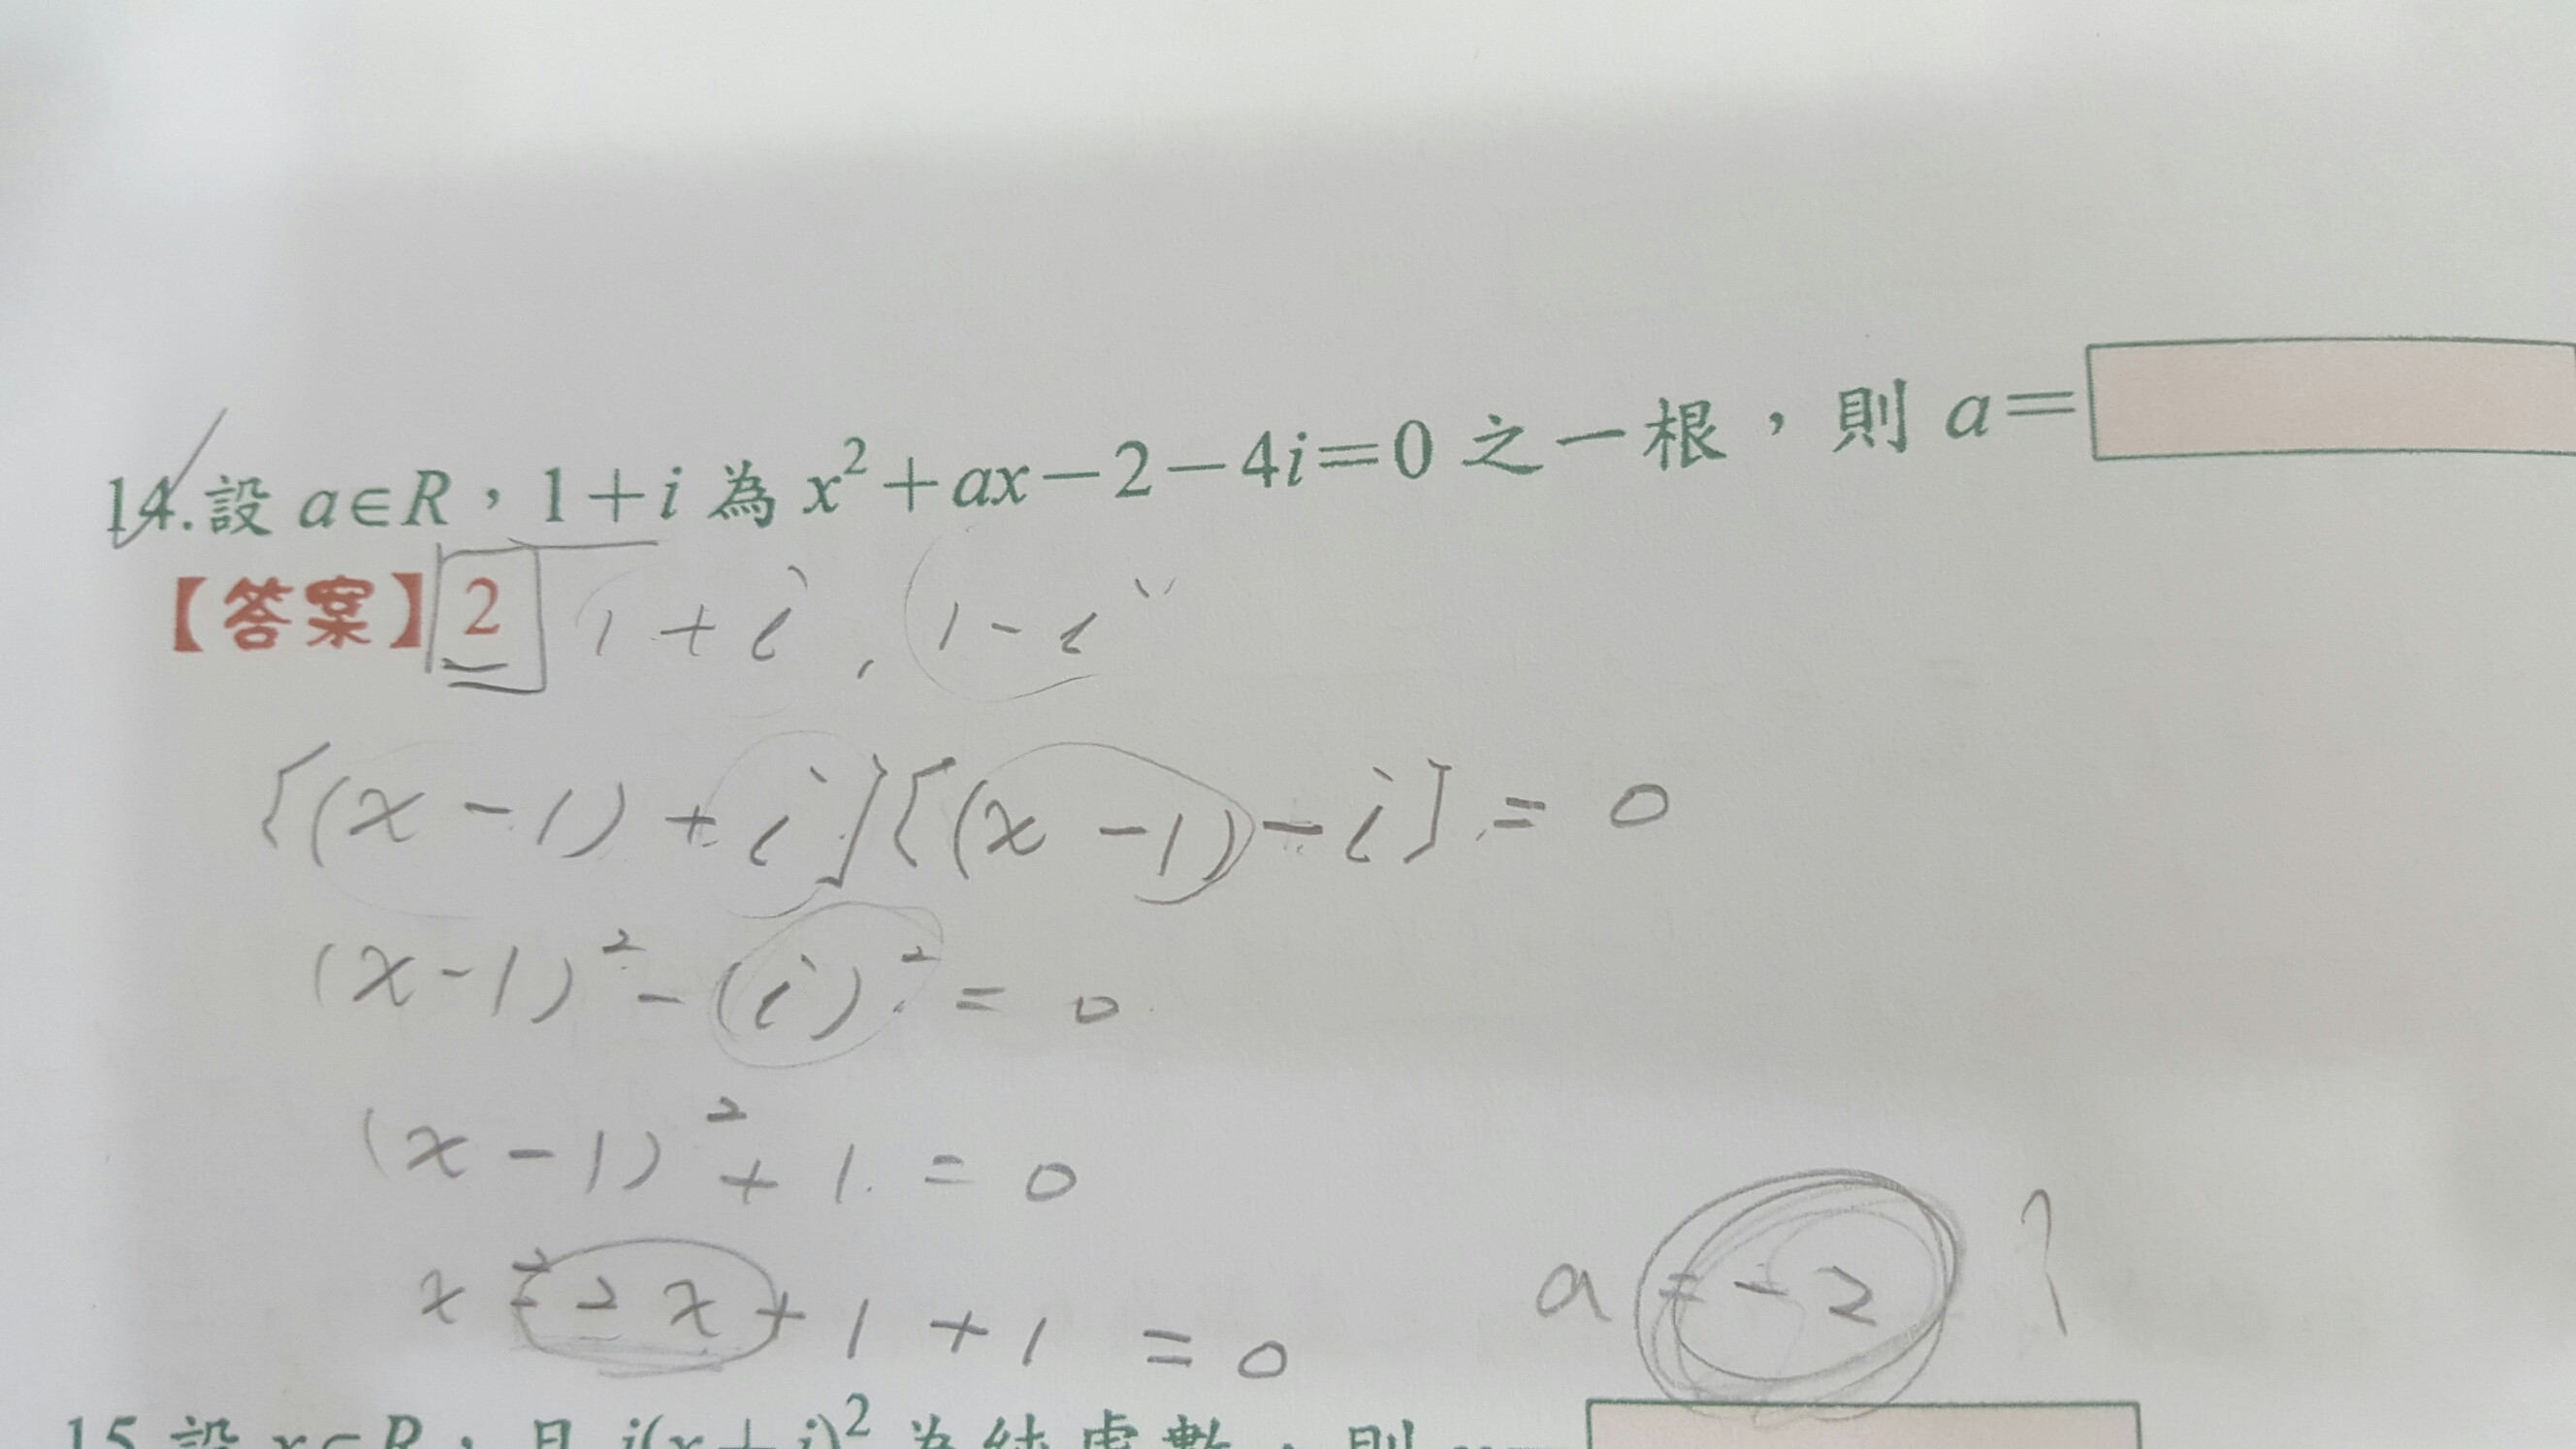 14.設 a∈R，1+i 為 x²+ax−2−4i=0 之一根，則 a=
【答案】2 1+i , 1-i
[(x-1)+i][(x-1)-i]=0
(x-1)²-(i)²=0
(x-1)²+1=0
x²-2x+1+1=0
a=-2?
15.設 x∈R，且 i(x+i)² 為純虛數，則